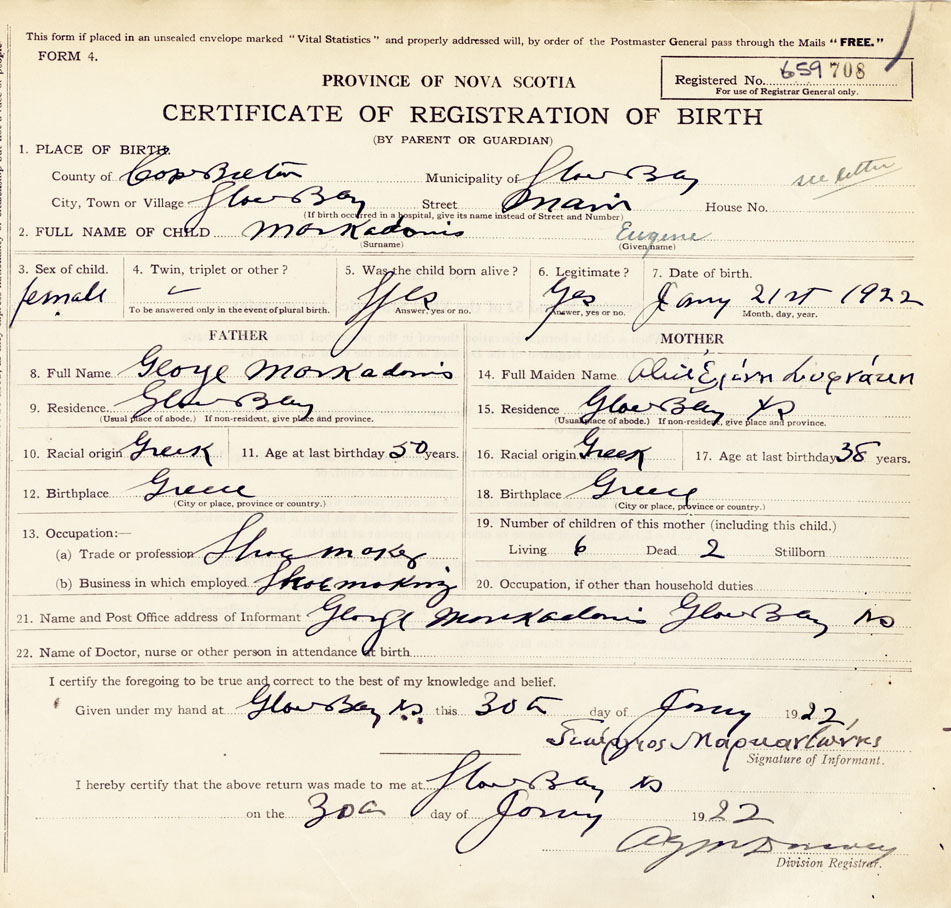 This form if placed in an unsealed envelope marked "Vital Statistics" and properly addressed will, by order of the Postmaster General pass through the Mails "FREE."
FORM 4.
Registered No. 659 708
For use of Registrar General only.
PROVINCE OF NOVA SCOTIA
CERTIFICATE OF REGISTRATION OF BIRTH
(BY PARENT OR GUARDIAN)
1. PLACE OF BIRTH.
see letter
County of Cape Breton Municipality of Glace Bay
City, Town or Village Glace Bay Street Main House No.
(If birth occurred in a hospital, give its name instead of Street and Number)
2. FULL NAME OF CHILD Markadonis Eugene
(Surname) (Given name)
3. Sex of child. 4. Twin, triplet or other? 5. Was the child born alive? 6. Legitimate? 7. Date of birth.
female Yes Yes Jany 21st 1922
To be answered only in the event of plural birth. Answer, yes or no. Answer, yes or no. Month, day, year.
FATHER
8. Full Name George Markadonis
9. Residence Glace Bay
(Usual place of abode.) If non-resident, give place and province.
10. Racial origin Greek 11. Age at last birthday 50 years.
12. Birthplace Greece
(City or place, province or country.)
13. Occupation:—
(a) Trade or profession Shoe maker
(b) Business in which employed Shoemaking
MOTHER
14. Full Maiden Name
15. Residence Glace Bay NS
(Usual place of abode.) If non-resident, give place and province.
16. Racial origin Greek 17. Age at last birthday 38 years.
18. Birthplace Greece
(City or place, province or country.)
19. Number of children of this mother (including this child.)
Living 6 Dead 2 Stillborn
20. Occupation, if other than household duties
21. Name and Post Office address of Informant George Markadonis Glace Bay NS
22. Name of Doctor, nurse or other person in attendance at birth
I certify the foregoing to be true and correct to the best of my knowledge and belief.
Given under my hand at Glace Bay NS this 30th day of Jany 1922
Γεώργιος Μαρκαντώνης
Signature of Informant.
I hereby certify that the above return was made to me at Glace Bay NS
on the 30th day of Jany 1922
Division Registrar.